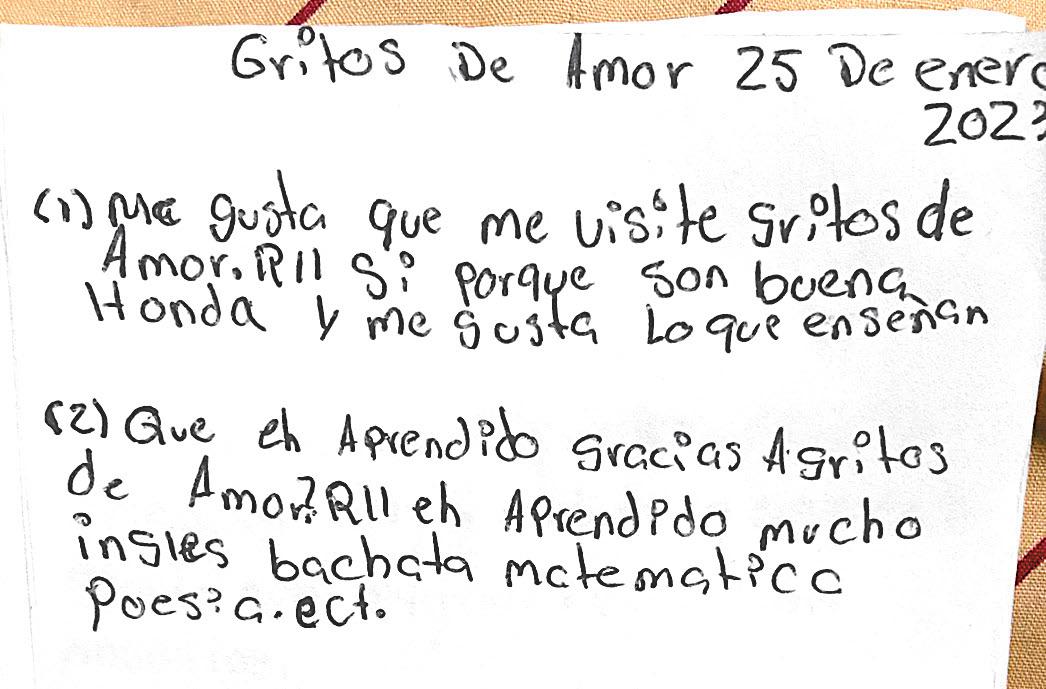 Gritos De Amor 25 De enero
2023
(1) Me gusta que me visite gritos de
Amor. R// Si porque son buena
Honda y me gusta Lo que enseñan
(2) Que eh Aprendido gracias A gritos
de Amor? R// eh Aprendido mucho
ingles bachata matematica
Poesia. ect.